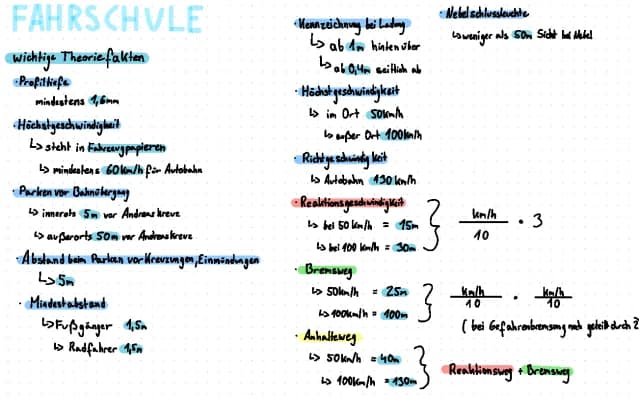 FAHRSCHULE
wichtige Theoriefakten
· Profiltiefe
mindestens 1,6mm
· Höchstgeschwindigkeit
↳ steht in Fahrzeugpapieren
↳ mindestens 60km/h für Autobahn
· Parken vor Bahnübergang
↳ innerorts 5m vor Andreaskreuz
↳ außerorts 50m vor Andreaskreuz
· Abstand beim Parken vor Kreuzungen, Einmündungen
↳ 5m
· Mindestabstand
↳ Fußgänger 1,5m
↳ Radfahrer 1,5m
· Kennzeichnung bei Ladung
↳ ab 1m hinten über
↳ ab 0,4m seitlich ab
· Höchstgeschwindigkeit
↳ im Ort 50km/h
↳ außer Ort 100km/h
· Richtgeschwindigkeit
↳ Autobahn 130 km/h
· Reaktionsgeschwindigkeit
↳ bei 50 km/h = 15m
↳ bei 100 km/h = 30m
km/h / 10 · 3
· Bremsweg
↳ 50km/h = 25m
↳ 100km/h = 100m
km/h / 10 · km/h / 10
(bei Gefahrenbremsung noch geteilt durch 2)
· Anhalteweg
↳ 50km/h = 40m
↳ 100km/h = 130m
Reaktionsweg + Bremsweg
· Nebelschlussleuchte
↳ weniger als 50m Sicht bei Nebel